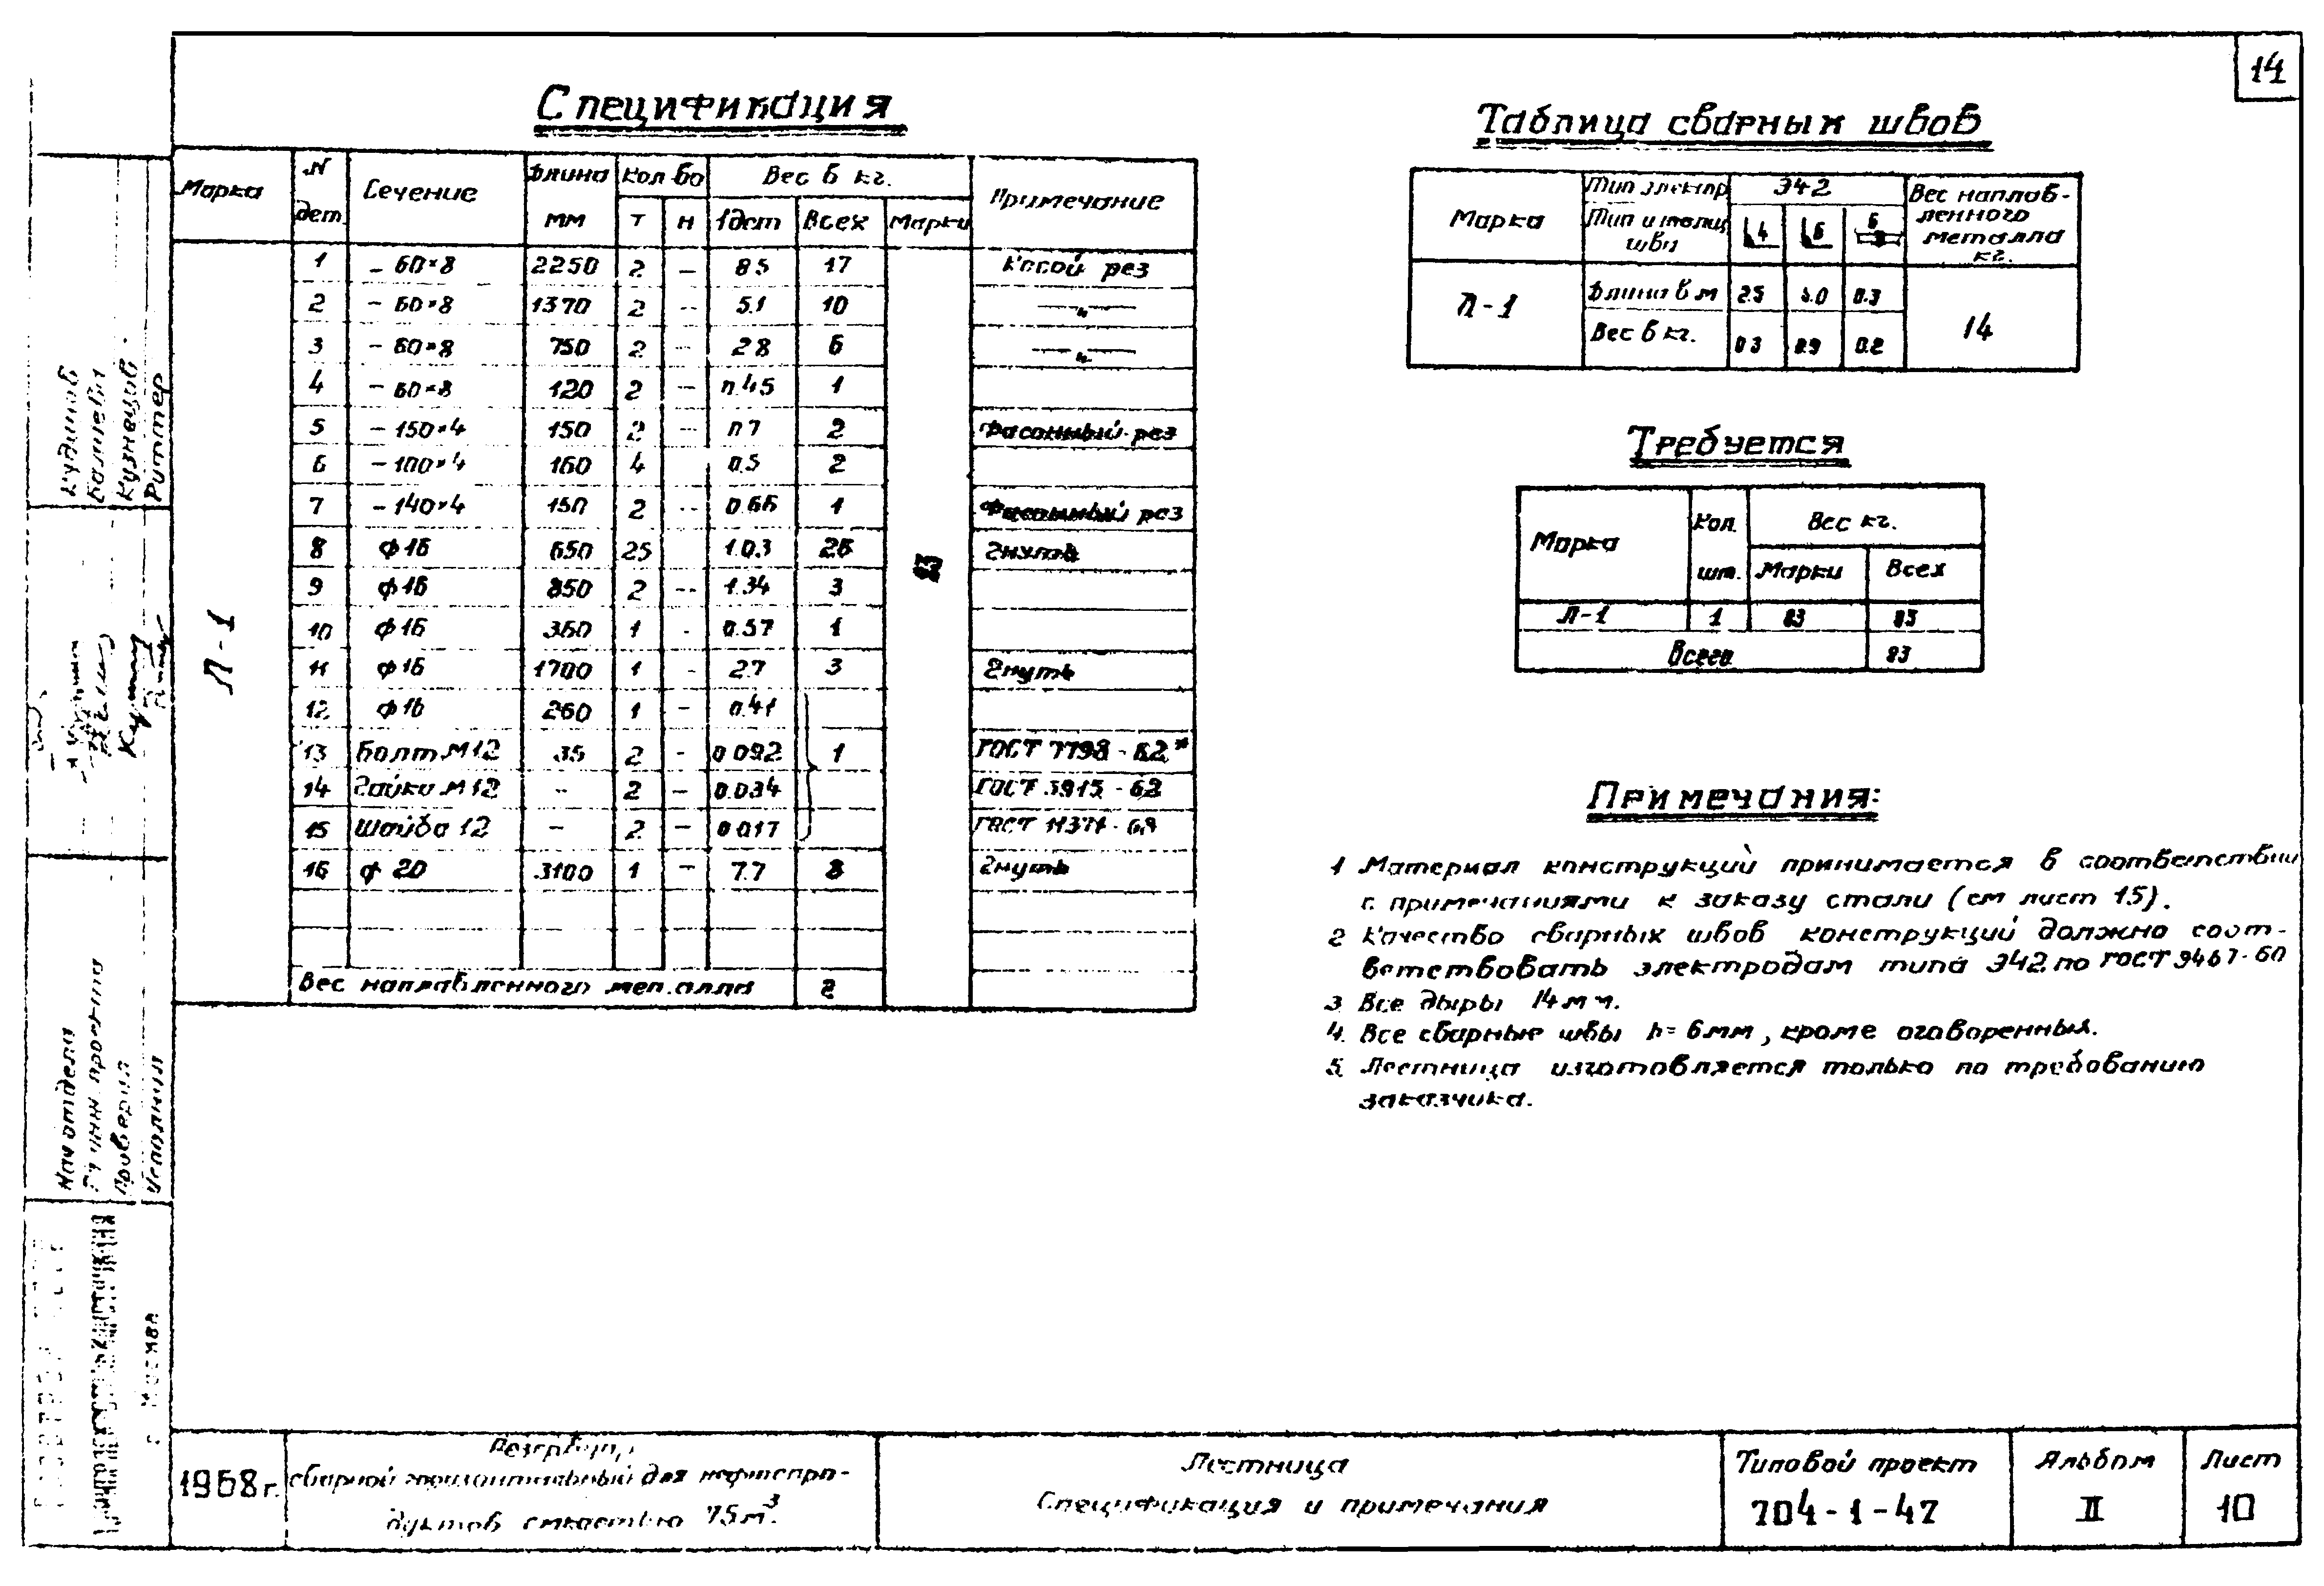 14
Спецификация
Марка | N дет. | Сечение | Длина мм | Кол-во т | н | Вес в кг. 1дет | Всех | Марки | Примечание
Л-1
1 | - 60×8 | 2250 | 2 | - | 8.5 | 17 | Косой рез
2 | - 60×8 | 1370 | 2 | - | 5.1 | 10 | -"-
3 | - 60×8 | 750 | 2 | - | 2.8 | 6 | -"-
4 | - 60×8 | 120 | 2 | - | 0.45 | 1
5 | - 150×4 | 150 | 2 | - | 0.7 | 2 | Фасонный рез
6 | - 100×4 | 160 | 4 | 0.5 | 2
7 | - 140×4 | 150 | 2 | - | 0.66 | 1 | Фасонный рез
8 | ф16 | 650 | 25 | 1.03 | 26 | Гнуть
9 | ф16 | 850 | 2 | - | 1.34 | 3
10 | ф16 | 360 | 1 | - | 0.57 | 1
11 | ф16 | 1700 | 1 | - | 2.7 | 3 | Гнуть
12 | ф16 | 260 | 1 | - | 0.41
13 | Болт М12 | 35 | 2 | - | 0.092 | 1 | ГОСТ 7798-62*
14 | Гайка М12 | - | 2 | - | 0.034 | ГОСТ 5915-62
15 | Шайба 12 | - | 2 | - | 0.017 | ГОСТ 11371-68
16 | ф 20 | 3100 | 1 | - | 7.7 | 8 | Гнуть
83
Вес наплавленного металла | 2
Таблица сварных швов
Марка | Тип электр. | Э42 | Вес наплавленного металла кг.
Тип и толщ. шва | 4 | 6 | 6
Л-1 | Длина в м | 2.5 | 0.3
Вес в кг. | 0.3 | 0.9 | 0.2 | 14
Требуется
Марка | Кол. шт. | Вес кг. Марки | Всех
Л-1 | 1 | 83 | 83
Всего | 83
Примечания:
1 Материал конструкций принимается в соответствии
с примечаниями к заказу стали (см лист 15).
2 Качество сварных швов конструкций должно соот-
ветствовать электродам типа Э42 по ГОСТ 9467-60
3. Все дыры 14мм.
4. Все сварные швы h=6мм, кроме оговоренных.
5. Лестница изготовляется только по требованию
заказчика.
Нач отдела
Проверил
Исполнил
Кудинов
Кузнецов
Риттер
г. Москва
1968г.
Резервуар
сварной горизонтальный для нефтепро-
дуктов емкостью 75м³.
Лестница
Спецификация и примечания
Типовой проект
704-1-47
Альбом
II
Лист
10